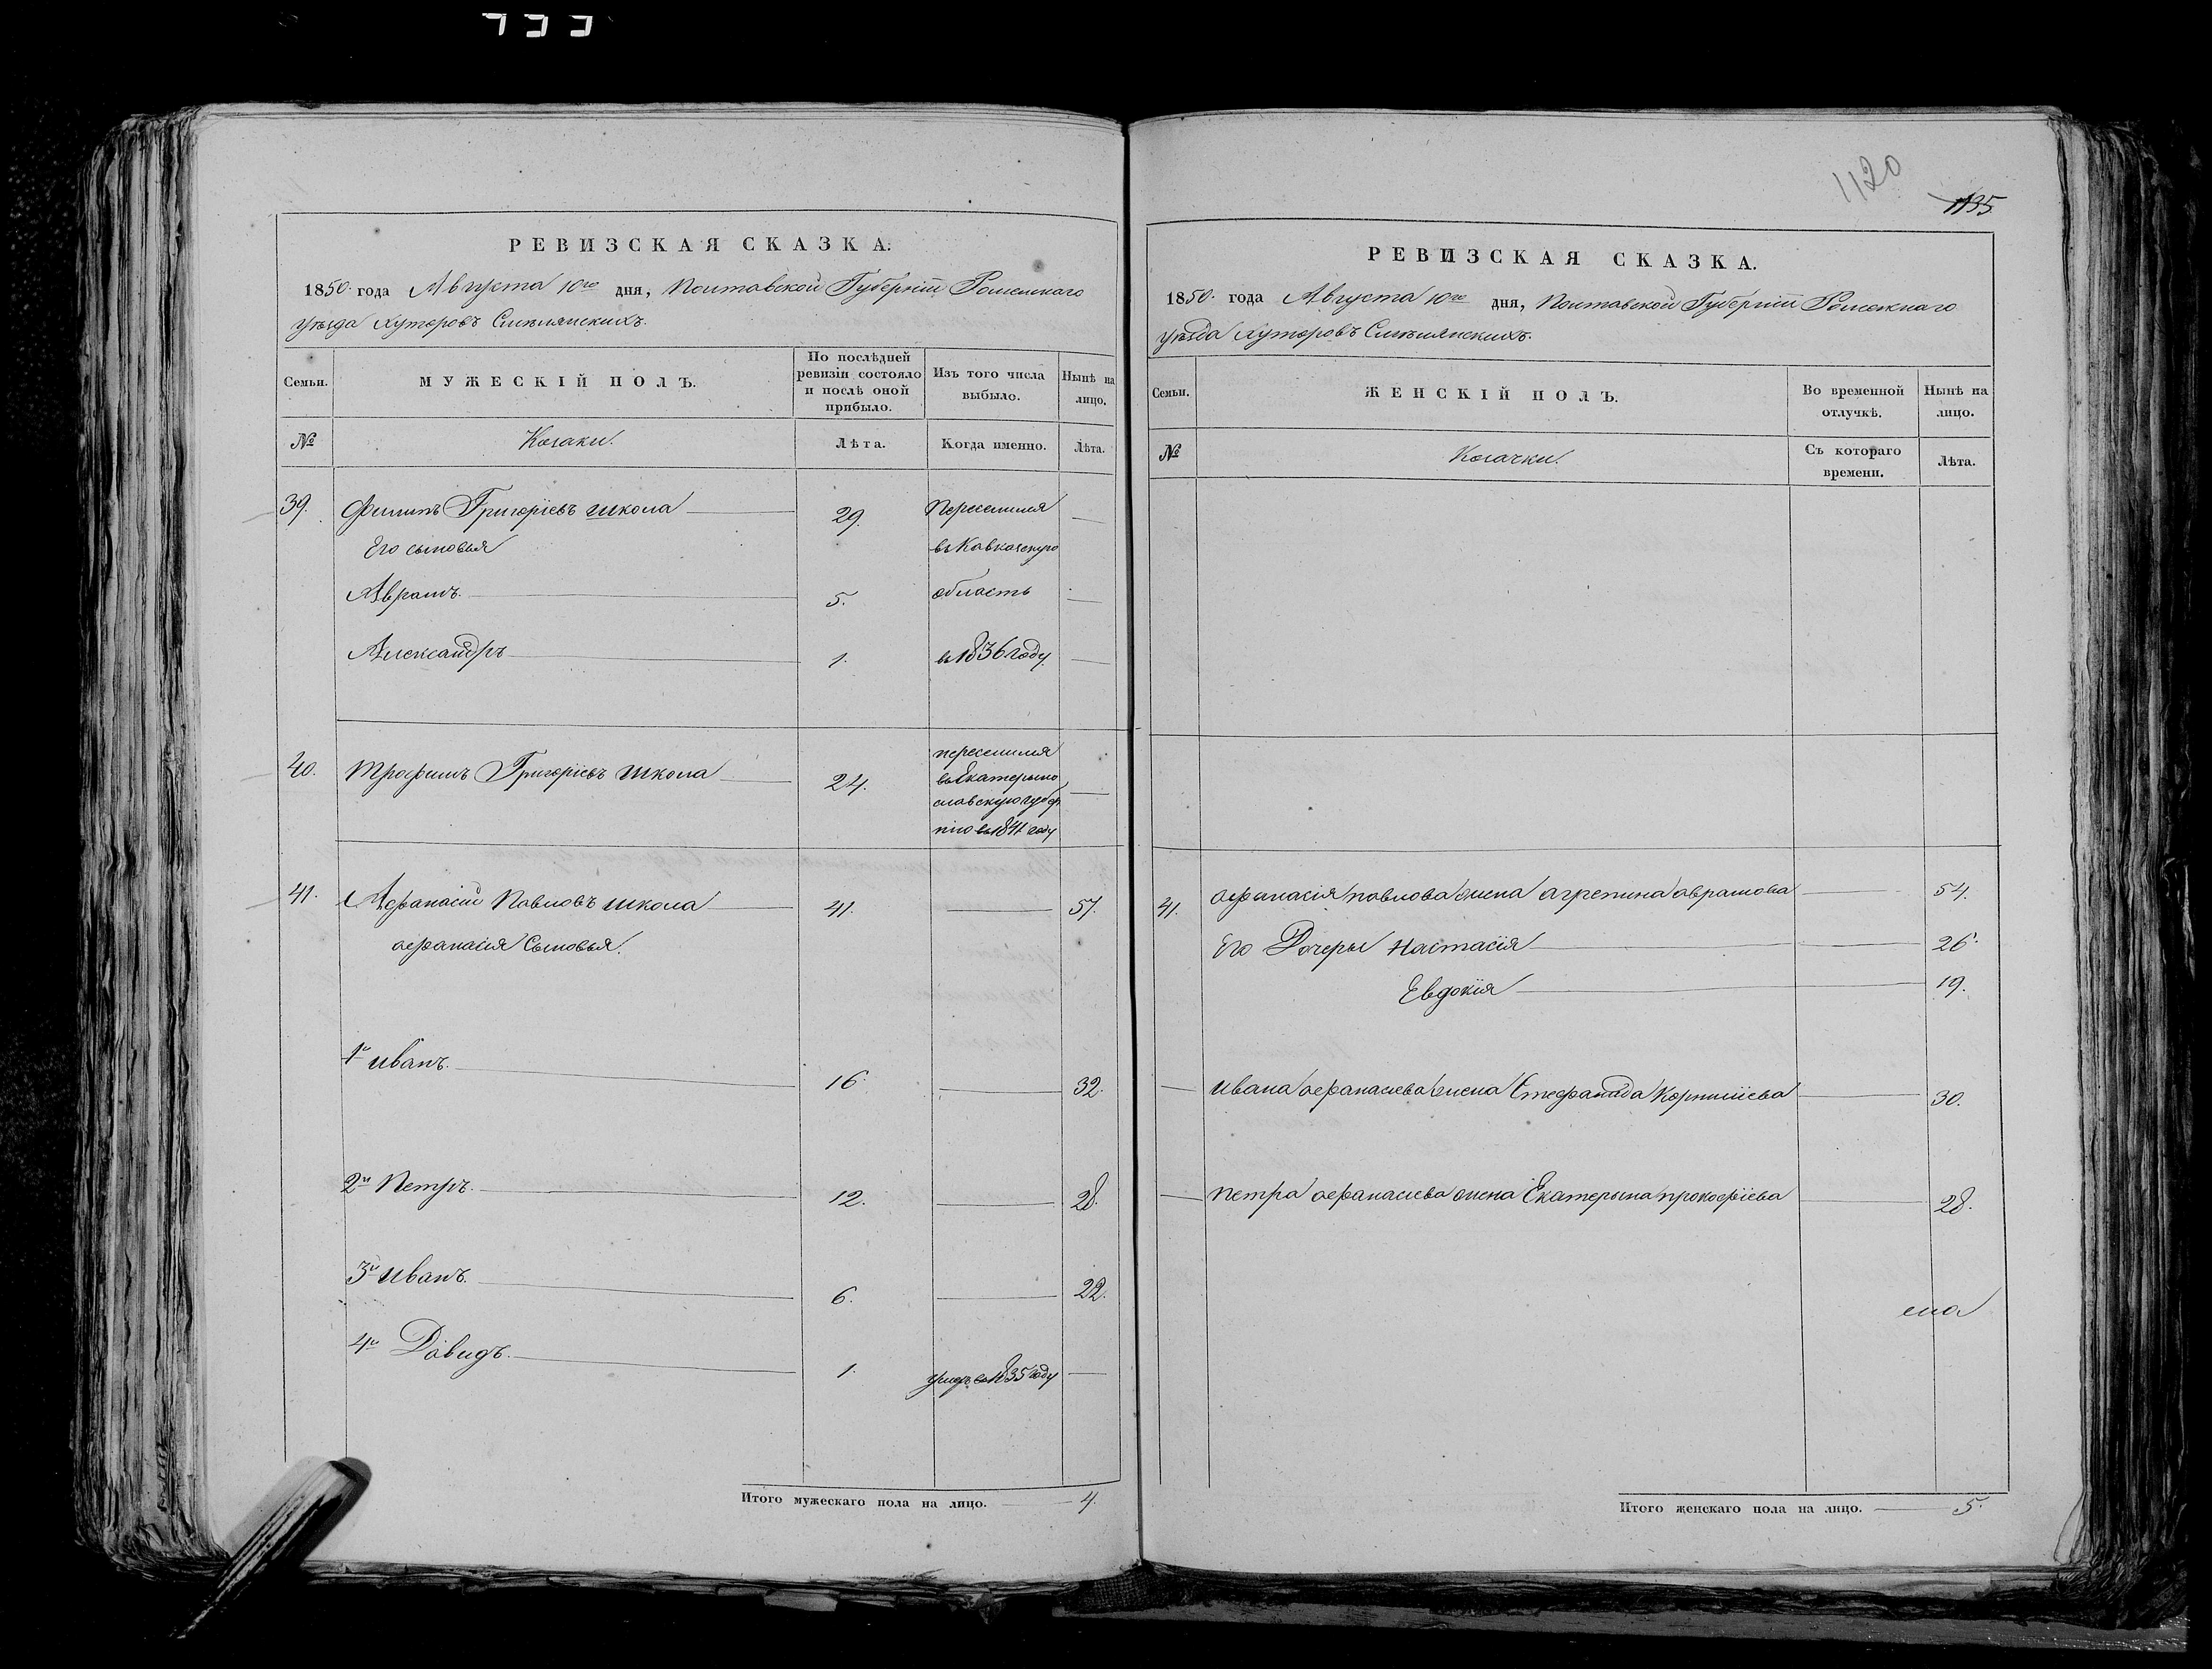 1120
1135
РЕВИЗСКАЯ СКАЗКА.
1850. года Августа 10го дня, Полтавской Губерніи Роменскаго
уѣзда Хуторовъ Смѣлянскихъ.
Семьи.
МУЖЕСКІЙ ПОЛЪ.
По послѣдней ревизіи состояло и послѣ оной прибыло.
Изъ того числа выбыло.
Нынѣ на лицо.
№
Козаки.
Лѣта.
Когда именно.
Лѣта.
39. Филипъ Григоріевъ Школа 29. Переселился
Его сыновья въ Кавказскую
Аврамъ. 5. область
Александръ 1. въ 1836 году.
40. Трофимъ Григоріевъ Школа 24. переселился
въ Екатерыно
славскую губер
нію въ 1841 году
41. Афанасій Павловъ Школа 41. 57.
Афанасія Сыновья.
1й Иванъ. 16. 32.
2й Петръ. 12. 28.
3й Иванъ. 6. 22.
4й Давидъ. 1. умеръ въ 1835 году
Итого мужескаго пола на лицо. 4.
РЕВИЗСКАЯ СКАЗКА.
1850. года Августа 10го дня, Полтавской Губерніи Роменскаго
уѣзда Хуторовъ Смѣлянскихъ.
Семьи.
ЖЕНСКІЙ ПОЛЪ.
Во временной отлучкѣ.
Нынѣ на лицо.
№
Козачки.
Съ котораго времени.
Лѣта.
41. Афанасія Павлова жена Агрепина Аврамова 54.
Его Дочеры Настасія 26.
Евдокія 19.
Ивана Афанасіева жена Стефанида Корниліева 30.
Петра Афанасіева жена Екатерына Прокофіева 28.
Итого женскаго пола на лицо. 5.